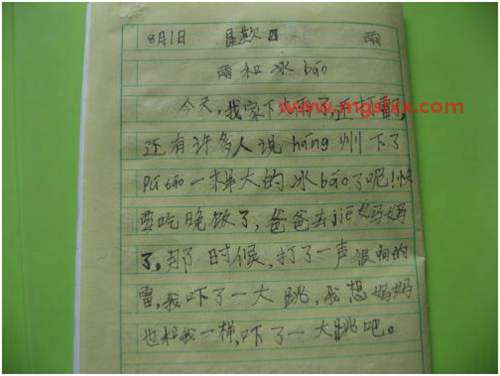 8月1日 星期日 雨
雨和冰báo
今天,我家下雨了,还打雷,
www.mgslxx.com
还有许多人说háng州下了
pú táo一样大的冰báo了呢!快
要吃晚饭了,爸爸去jiē妈妈
了,那时候,打了一声很响的
雷,我吓了一大跳,我想妈妈
也和我一样,吓了一大跳吧。